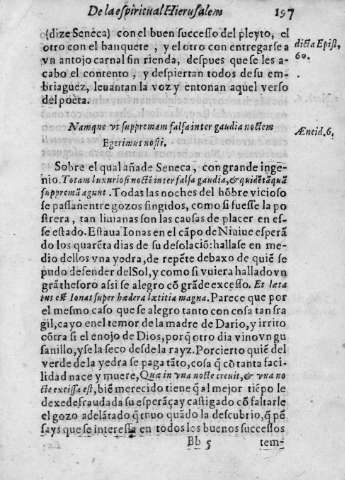 De la espiritual Hierusalem 197
(dize Seneca) con el buen successo del pleyto, el
otro con el banquete, y el otro con entregarse a
vn antojo carnal sin rienda, despues que se les a-
cabo el contento, y despiertan todos de su em-
briaguez, leuantan la voz y entonan aquel verso
del poeta.
dicta Epist.
60.
Namque vt suppremam falsa inter gaudia noctem
Egerimus nosti.
Æneid. 6.
Sobre el qual añade Seneca, con grande inge-
nio. Totam luxuriosi noctē inter falsa gaudia, & quidē tāquā
suppremā agunt. Todas las noches del hōbre vicioso
se passan entre gozos fingidos, como si fuesse la po
strera, tan liuianas son las causas de placer en es-
se estado. Estaua Ionas en el cāpo de Niniue esperā
do los quarēta dias de su desolaciō: hallase en me-
dio dellos vna yedra, de repēte debaxo de quiē se
pudo defender del Sol, y como si vuiera hallado vn
grā thesoro assi se alegro cō grāde excesso. Et læta
tus est Ionas super hædera lætitia magna. Parece que por
el mesmo caso que se alegro tanto con cosa tan fra
gil, cayo en el temor de la madre de Dario, y irrito
cōtra si el enojo de Dios, por q̄ otro dia vino vn gu
sanillo, y se la seco desde la rayz. Por cierto quiē del
verde de la yedra se paga tāto, cosa q̄ cō tanta faci-
lidad nace y muere, Qua in vna nocte creuit, & vna no
cte excissa est, biē merecido tiene q̄ al mejor tiēpo le
dexe defraudada su esperāça y castigado cō faltarle
el gozo adelātado q̄ tuuo quādo la descubrio, q̄ pē
says que se interessa en todos los buenos successos
Bb 5 tem-